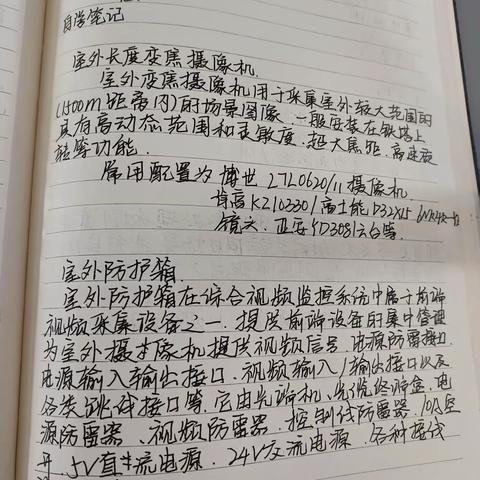 自学笔记
室外长度变焦摄像机
室外变焦摄像机用于采集室外较大范围的
(1500m距离内)的场景图像.一般安装在铁塔上
具有高动态范围和灵敏度.超大焦距.高速旋
转等功能.
常用配置为博世 27L0620/11摄像机
肯高KZ10330/富士能D32X15
镜头.亚安YD3081云台等.
室外防护箱.
室外防护箱在综合视频监控系统中属于前端
视频采集设备之一.提供前端设备的集中管理
为室外摄像机提供视频信号.电源防雷接口.
电源输入输出接口.视频输入/输出接口以及
各类跳线接口等.它由光端机、光缆终端盒.电
源防雷器.视频防雷器.控制线防雷器.10A空
开.5V直流电源.24V交流电源.各种接线